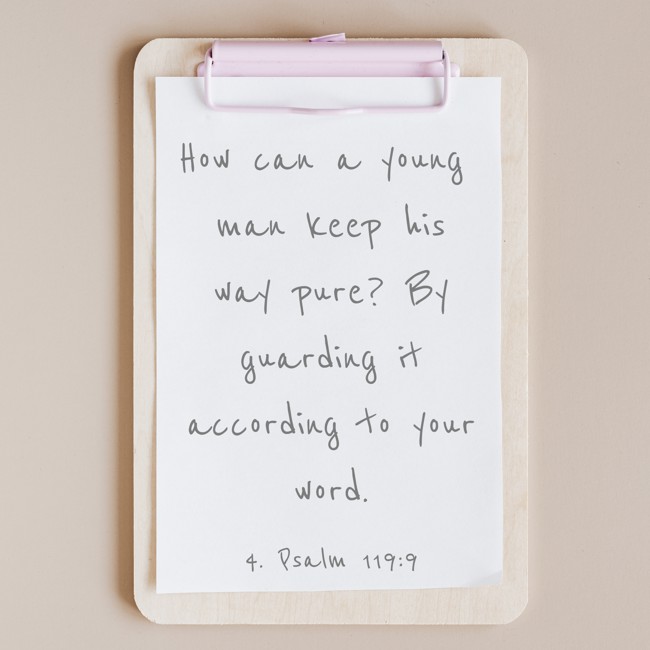 How can a young
man keep his
way pure? By
guarding it
according to your
word.
4. Psalm 119:9